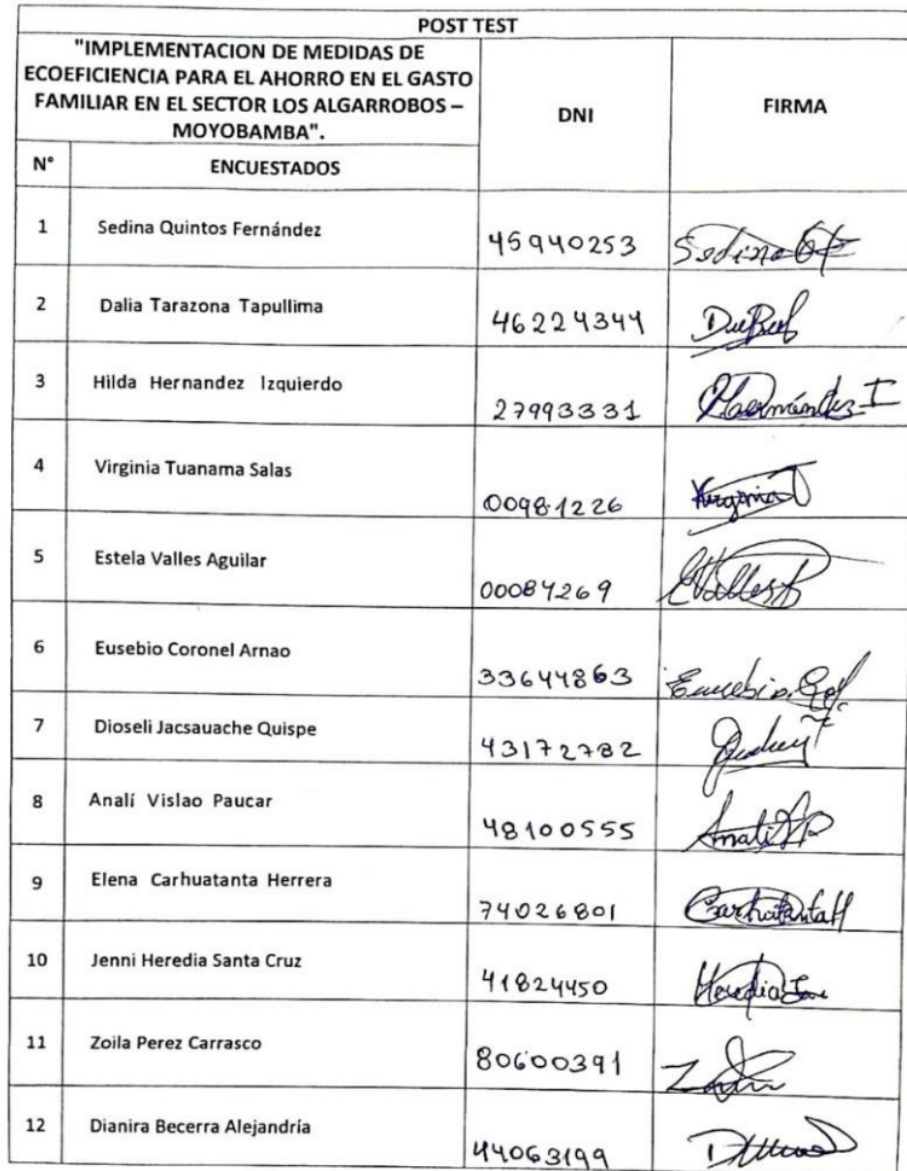 POST TEST
"IMPLEMENTACION DE MEDIDAS DE
ECOEFICIENCIA PARA EL AHORRO EN EL GASTO
FAMILIAR EN EL SECTOR LOS ALGARROBOS –
MOYOBAMBA".
DNI
FIRMA
N° ENCUESTADOS
1 Sedina Quintos Fernández 45940253 Sedina QF
2 Dalia Tarazona Tapullima 46224344
3 Hilda Hernandez Izquierdo 27993331 Hernández I
4 Virginia Tuanama Salas 00981226 Virginia
5 Estela Valles Aguilar 00084269 EVallesA
6 Eusebio Coronel Arnao 33644863 Eusebio
7 Dioseli Jacsauache Quispe 43172782
8 Analí Vislao Paucar 48100555 Analí VP
9 Elena Carhuatanta Herrera 74026801 CarhatantaH
10 Jenni Heredia Santa Cruz 41824450 Heredia
11 Zoila Perez Carrasco 80600391
12 Dianira Becerra Alejandría 44063199